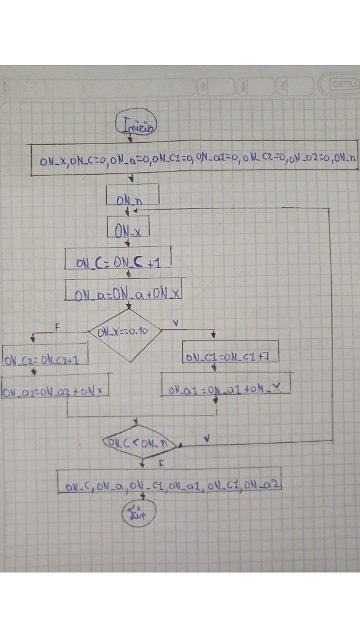 ESTILO
Inicio
ON_X, ON_C=0, ON_a=0, ON_C1=0, ON_a1=0, ON_C2=0, ON_a2=0, ON_n
ON_n
ON_x
ON_C=ON_C+1
ON_a=ON_a+ON_x
F
V
ON_C2=ON_C2+1
ON_C1=ON_C1+1
ON_a2=ON_a2+ONx
ON_a1=ON_a1+ON_X
ON_C<ON_n
V
F
ON_C, ON_a, ON_C1, ON_a1, ON_C1, ON_a2
Fin